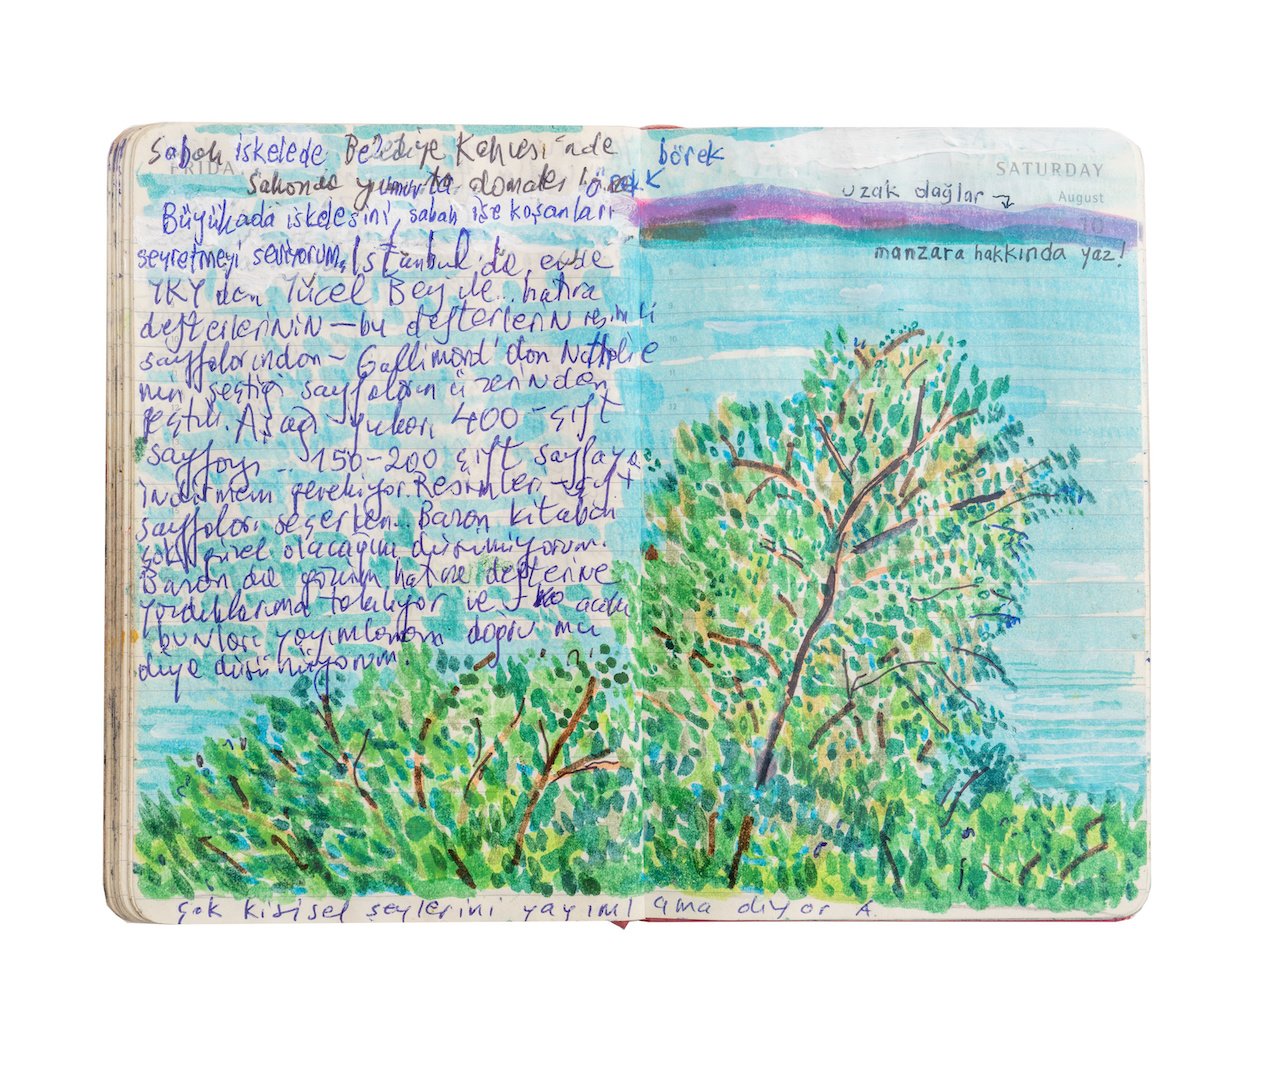 Sabah iskelede Belediye Kahvesi'nde börek
FRIDAY
SATURDAY
Sahanda yumurta domates börek
August
uzak dağlar →
10
Büyükada iskelesini, sabah işe koşanları
manzara hakkında yaz!
seyretmeyi seviyorum. İstanbul'da, evde
YKY'den Yücel Bey ile.. hatıra
defterlerinin – bu defterlerin resimli
sayfalarından – Gallimard'dan Nathalie
nin seçtiği sayfaların üzerinden
geçtik. Aşağı yukarı 400 – çift
sayfayı .. 150-200 çift sayfaya
indirmem gerekiyor. Resimleri – çift
sayfaları seçerken.. Bazen kitabın
çok güzel olacağını düşünüyorum.
Bazen de gözüm hatıra defterine
yazdıklarıma takılıyor ve
bunları yayımlamam doğru mu
diye düşünüyorum.
Çok kişisel şeylerini yayımlama diyor A.